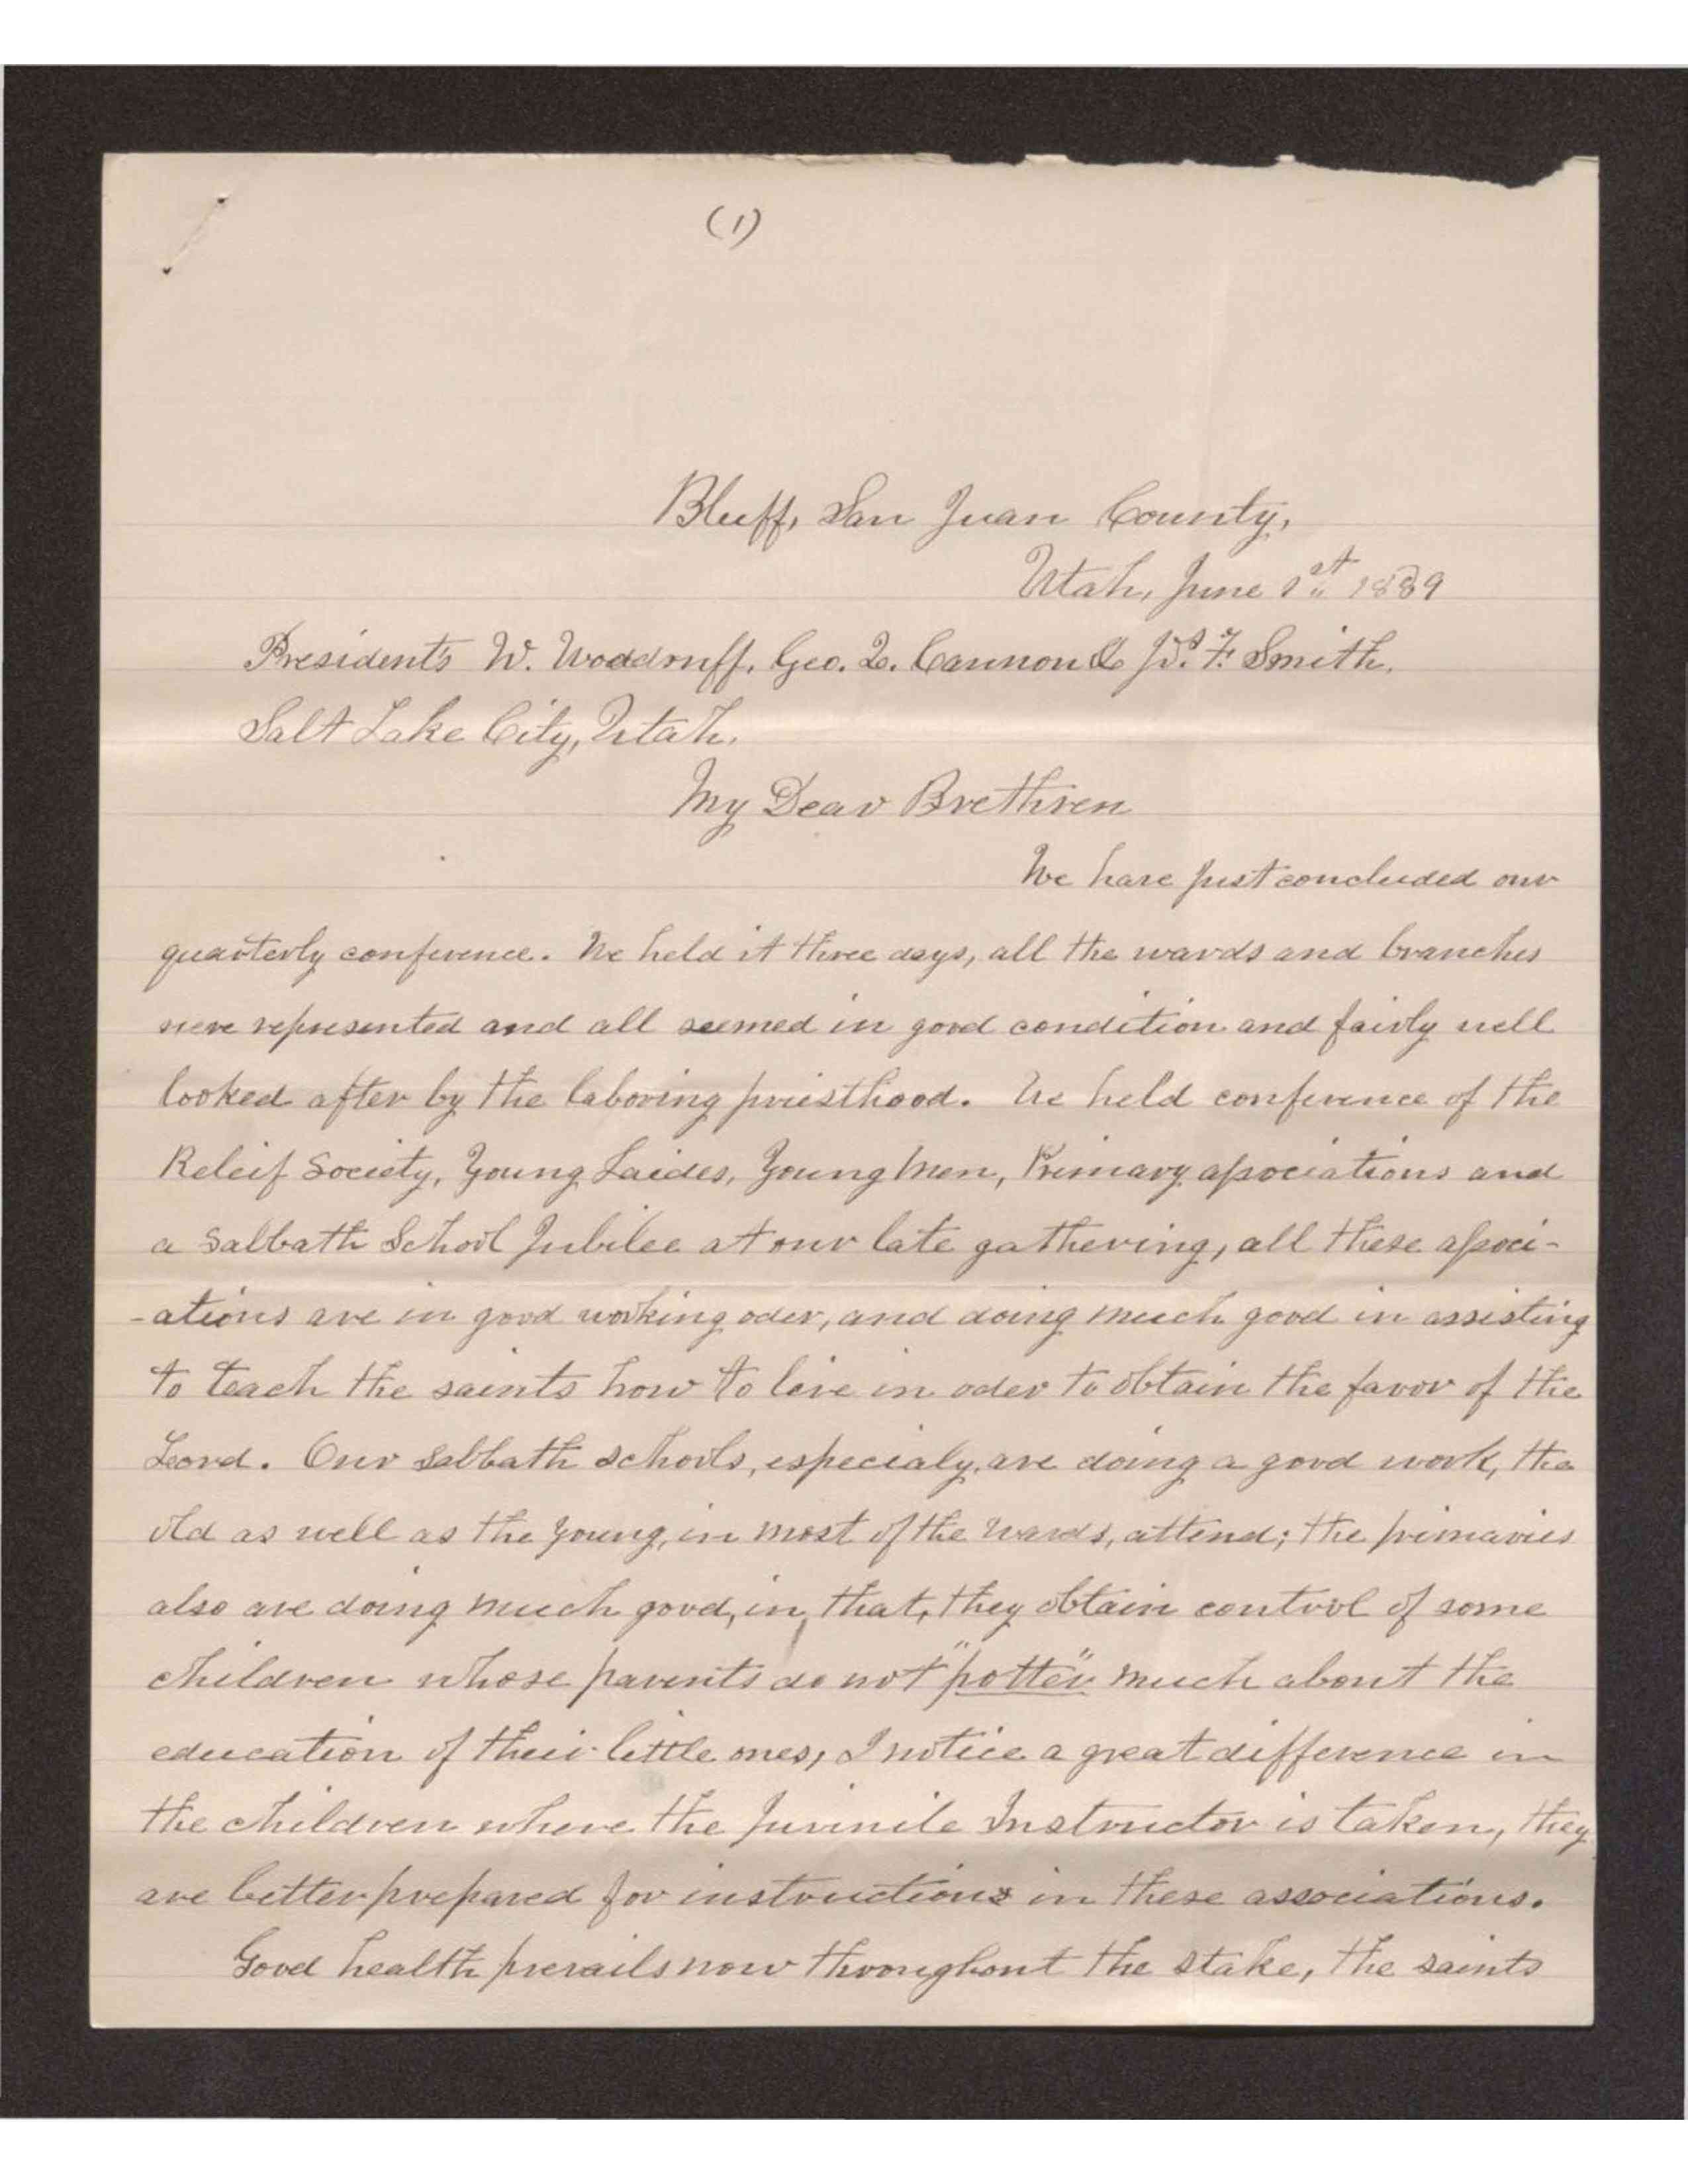 (1)
Bluff, San Juan County,
Utah, June 1st 1889
Presidents W. Woodruff, Geo. Q. Cannon & Jos. F. Smith.
Salt Lake City, Utah.
My Dear Brethren
We have just concluded our
quarterly conference. We held it three days, all the wards and branches
were represented and all seemed in good condition and fairly well
looked after by the laboring priesthood. We held conference of the
Releif Society, Young Laides, Young Men, Primary associations and
a Sabbath School Jubilee at our late gathering, all these associ-
-ations are in good working oder, and doing much good in assisting
to teach the saints how to live in oder to obtain the favor of the
Lord. Our Sabbath schools, especialy, are doing a good work, the
old as well as the young, in most of the wards, attend; the primaries
also are doing much good, in, that, they obtain control of some
children whose parents do not "potter" much about the
education of their little ones, I notice a great difference in
the children where the Juvinile Instructor is taken, they
are better prepared for instructions in these associations.
Good health prevails now throughout the stake, the saints